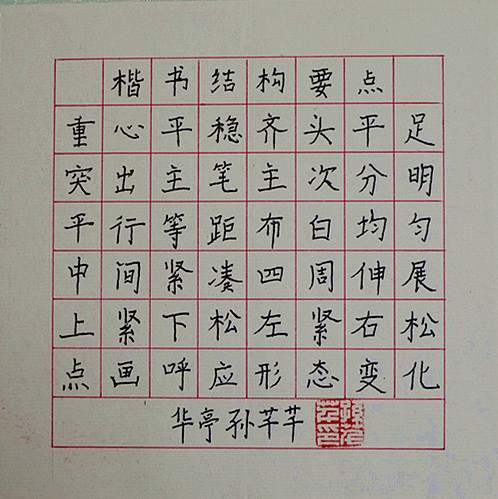 楷书结构要点
重心平稳齐头平足
突出主笔主次分明
平行等距布白均匀
中间紧凑四周伸展
上紧下松左紧右松
点画呼应形态变化
华亭孙芊芊